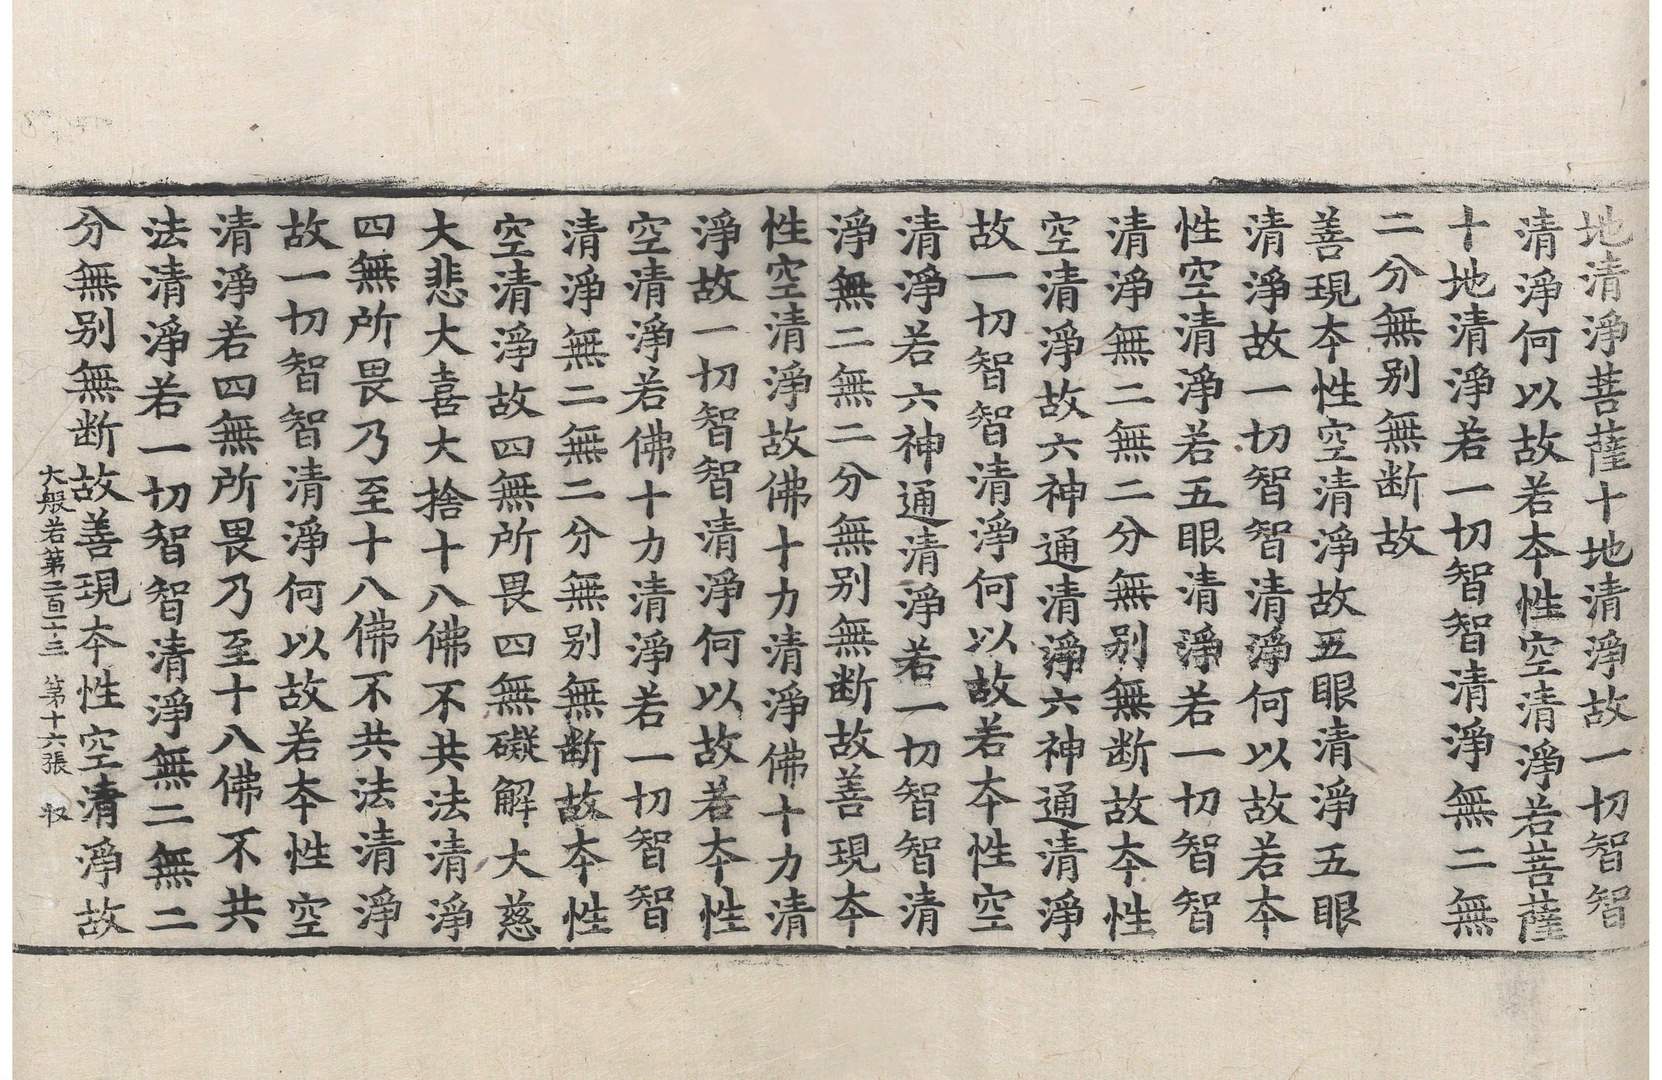 地清淨菩薩十地清淨故一切智智
清淨何以故若本性空清淨若菩薩
十地清淨若一切智智清淨無二無
二分無別無断故
善現本性空清淨故五眼清淨五眼
清淨故一切智智清淨何以故若本
性空清淨若五眼清淨若一切智智
清淨無二無二分無別無断故本性
空清淨故六神通清淨六神通清淨
故一切智智清淨何以故若本性空
清淨若六神通清淨若一切智智清
淨無二無二分無別無断故善現本
性空清淨故佛十力清淨佛十力清
淨故一切智智清淨何以故若本性
空清淨若佛十力清淨若一切智智
清淨無二無二分無別無断故本性
空清淨故四無所畏四無礙解大慈
大悲大喜大捨十八佛不共法清淨
四無所畏乃至十八佛不共法清淨
故一切智智清淨何以故若本性空
清淨若四無所畏乃至十八佛不共
法清淨若一切智智清淨無二無二
分無別無断故善現本性空清淨故
大般若第二百二十三 第十六張 収